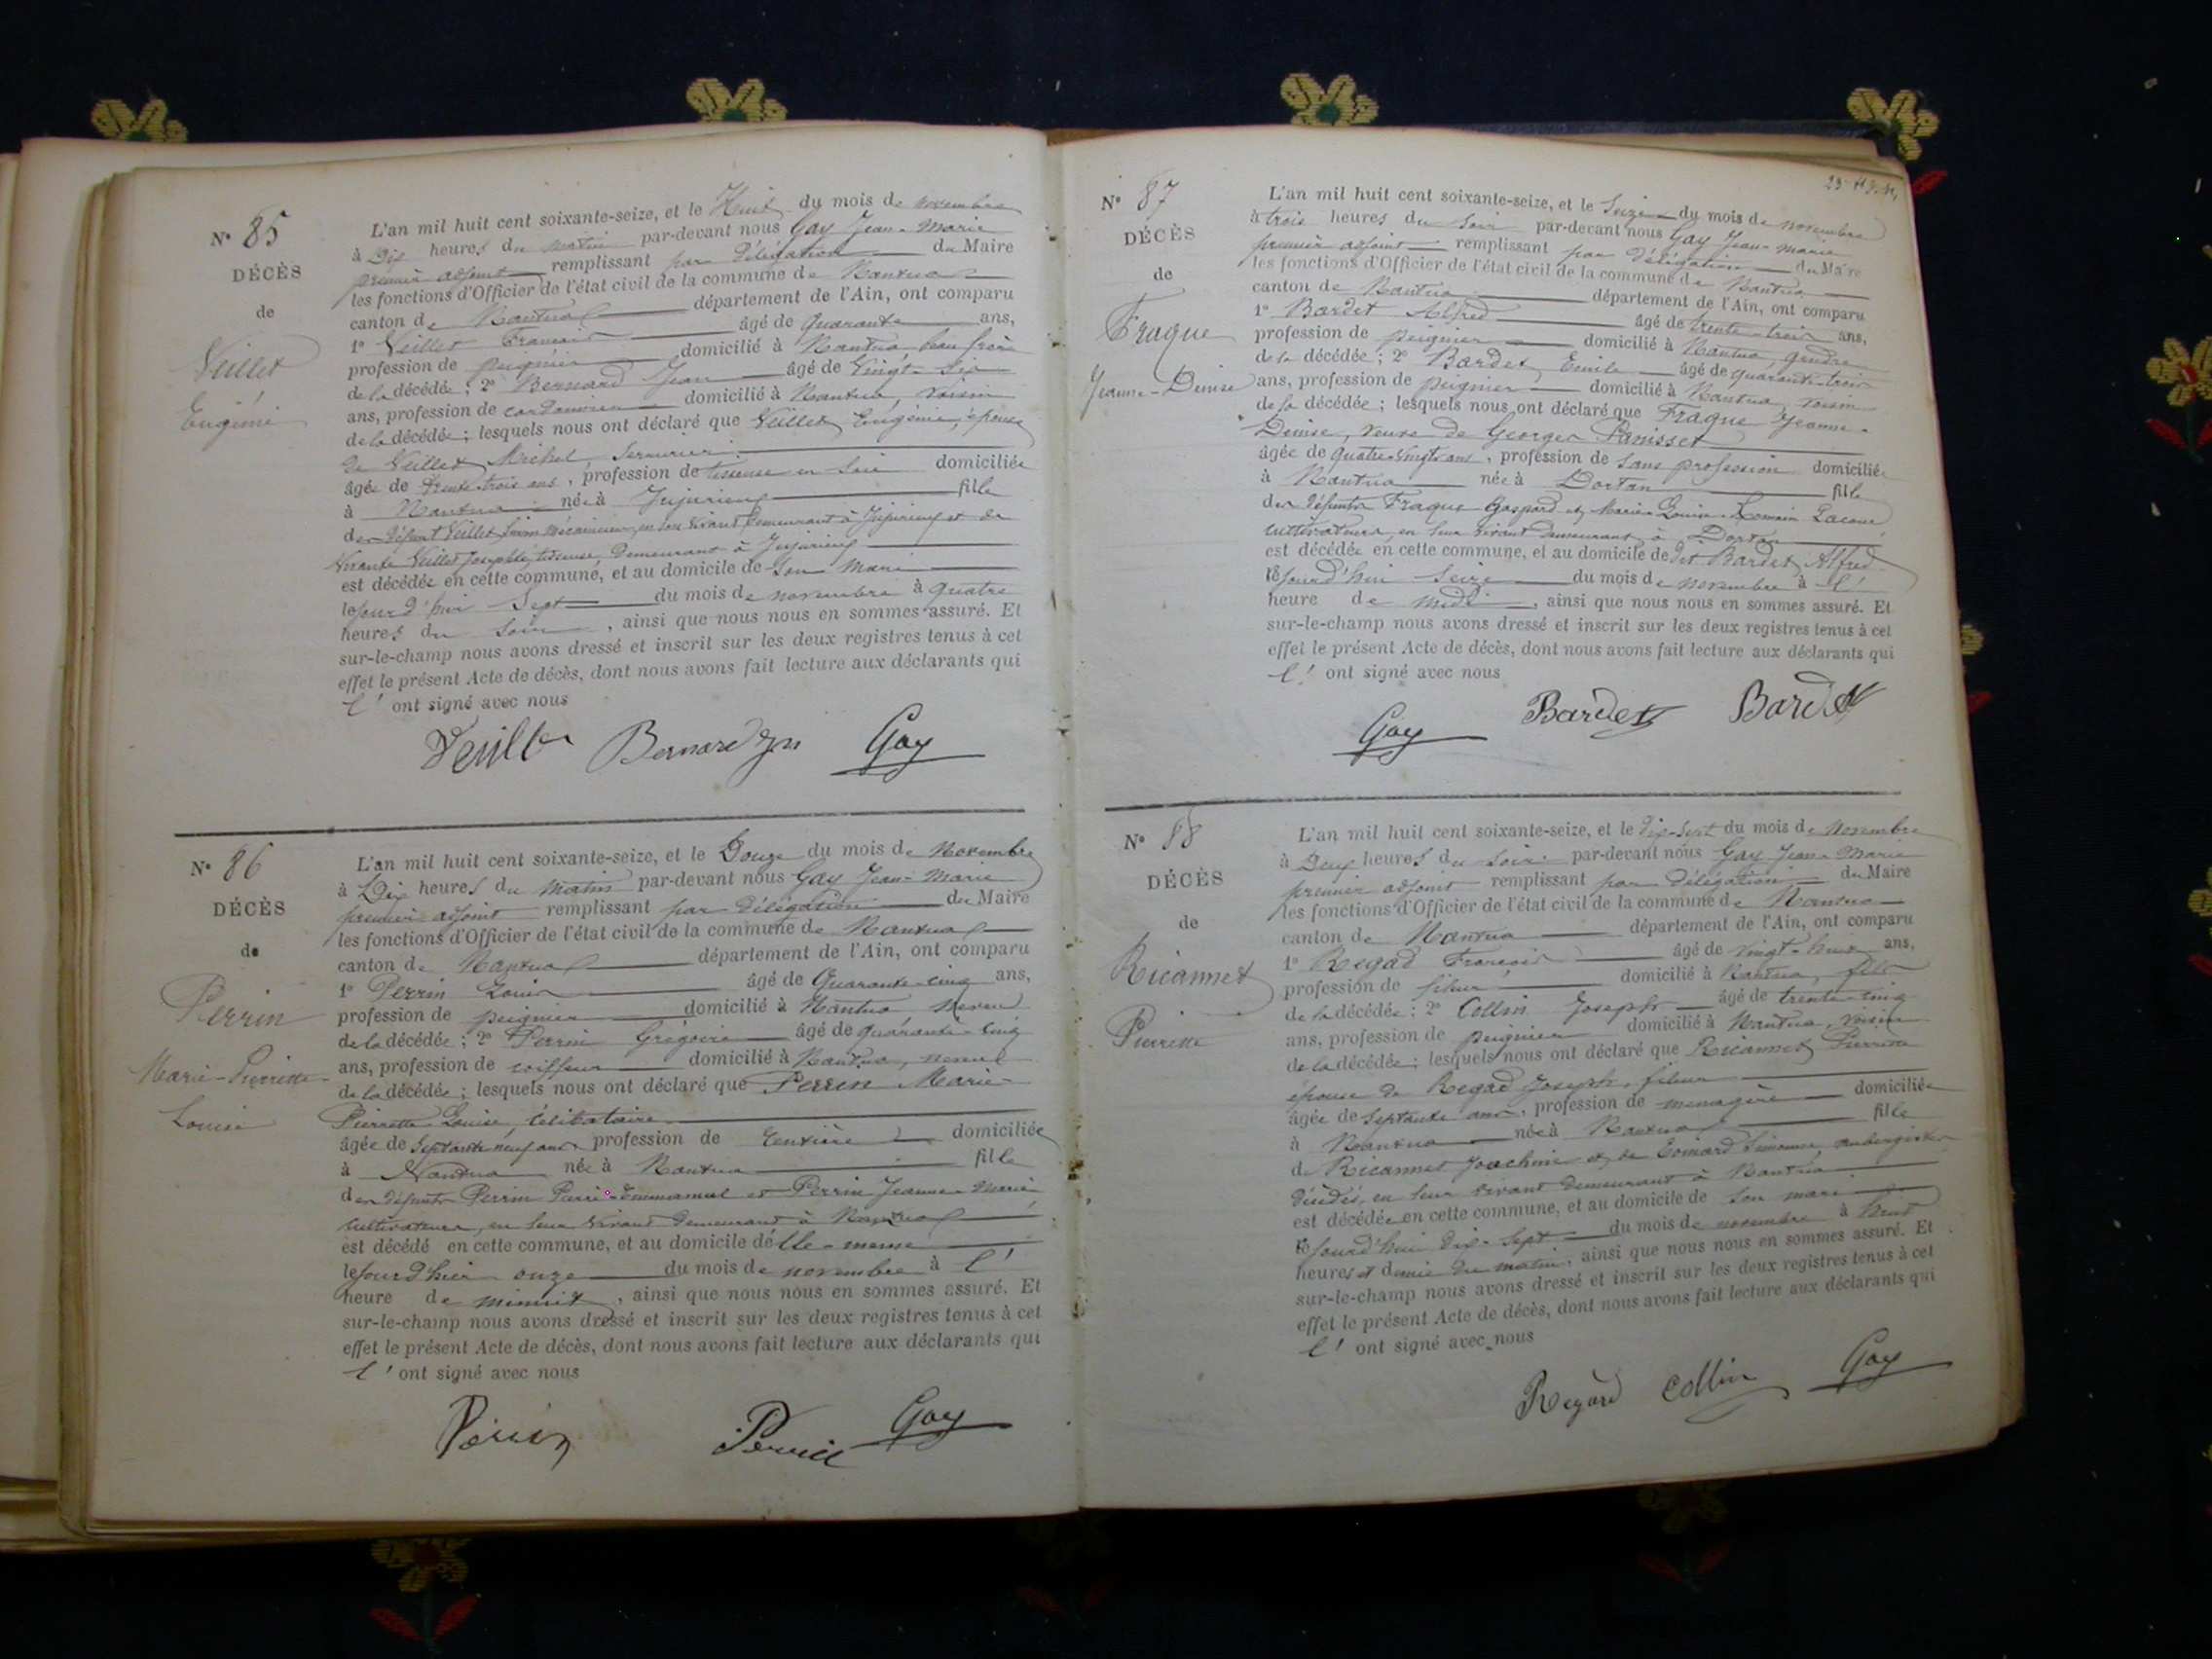 N° 85
DÉCÈS
de
Veillet
Eugénie
L'an mil huit cent soixante-seize, et le Huit du mois de novembre
à Dix heures du matin par-devant nous Gay Jean-Marie
premier adjoint remplissant par délégation du Maire
les fonctions d'Officier de l'état civil de la commune de Nantua
canton de Nantua département de l'Ain, ont comparu
1° Veillet François âgé de quarante ans,
profession de peignier domicilié à Nantua beau frère
de la décédée; 2° Bernard Jean âgé de Vingt-six
ans, profession de cordonnier domicilié à Nantua, voisin
de la décédée; lesquels nous ont déclaré que Veillet Eugénie, épouse
de Veillet Michel Serrurier
âgée de trente-trois ans, profession de tisseuse en soie domiciliée
à Nantua née à Jujurieux fille
de défunt Veillet mécanicien, en son vivant demeurant à Jujurieux et de
vivante Veillet Josephte, tisseuse, demeurant à Jujurieux
est décédée en cette commune, et au domicile de son mari
le jour d'hier Sept du mois de novembre à quatre
heures du soir, ainsi que nous nous en sommes assuré. Et
sur-le-champ nous avons dressé et inscrit sur les deux registres tenus à cet
effet le présent Acte de décès, dont nous avons fait lecture aux déclarants qui
l' ont signé avec nous
Veillet Bernard Jn Gay
N° 86
DÉCÈS
de
Perrin
Marie-Pierrette-
Louise
L'an mil huit cent soixante-seize, et le Douze du mois de Novembre
à Dix heures du matin par-devant nous Gay Jean-Marie
premier adjoint remplissant par délégation du Maire
les fonctions d'Officier de l'état civil de la commune de Nantua
canton de Nantua département de l'Ain, ont comparu
1° Perrin Louis âgé de Quarante-cinq ans,
profession de peignier domicilié à Nantua neveu
de la décédée; 2° Perrin Grégoire âgé de quarante-cinq
ans, profession de coiffeur domicilié à Nantua, neveu
de la décédée; lesquels nous ont déclaré que Perrin Marie-
Pierrette-Louise, célibataire
âgée de Septante neuf ans profession de rentière domiciliée
à Nantua née à Nantua fille
des défunts Perrin Pierre-Emmanuel et Perrin Jeanne-Marie
cultivateurs, en leur vivant demeurant à Nantua
est décédé en cette commune, et au domicile d'elle-meme
le jour d'hier onze du mois de novembre à l'
heure de minuit, ainsi que nous nous en sommes assuré. Et
sur-le-champ nous avons dressé et inscrit sur les deux registres tenus à cet
effet le présent Acte de décès, dont nous avons fait lecture aux déclarants qui
l' ont signé avec nous
Perrin Perrin Gay
N° 87
DÉCÈS
de
Fraque
Jeanne-Denise
L'an mil huit cent soixante-seize, et le Seize du mois de novembre
à trois heures du soir par-devant nous Gay Jean-Marie
premier adjoint remplissant par délégation du Maire
les fonctions d'Officier de l'état civil de la commune de Nantua
canton de Nantua département de l'Ain, ont comparu
1° Bardet Alfred âgé de trente-trois ans,
profession de peignier domicilié à Nantua, gendre
de la décédée; 2° Bardet Emile âgé de quarante-trois
ans, profession de peignier domicilié à Nantua, voisin
de la décédée; lesquels nous ont déclaré que Fraque Jeanne-
Denise, veuve de Georges Panisset
âgée de quatre-vingts ans, profession de sans profession domiciliée
à Nantua née à Dortan fille
des défunts Fraque Gaspard et Marie-Louise-Romain Lacour
cultivateurs, en leur vivant demeurant à Dortan
est décédée en cette commune, et au domicile de dit Bardet Alfred
le jourd'hui Seize du mois de novembre à l'
heure de midi, ainsi que nous nous en sommes assuré. Et
sur-le-champ nous avons dressé et inscrit sur les deux registres tenus à cet
effet le présent Acte de décès, dont nous avons fait lecture aux déclarants qui
l' ont signé avec nous
Gay Bardet Bardet
N° 88
DÉCÈS
de
Ricannet
Pierrette
L'an mil huit cent soixante-seize, et le Dix-Sept du mois de Novembre
à Deux heures du soir par-devant nous Gay Jean-Marie
premier adjoint remplissant par délégation du Maire
les fonctions d'Officier de l'état civil de la commune de Nantua
canton de Nantua département de l'Ain, ont comparu
1° Regad François âgé de vingt-huit ans,
profession de fileur domicilié à Nantua, fils
de la décédée; 2° Collin Joseph âgé de trente-cinq
ans, profession de peignier domicilié à Nantua, voisin
de la décédée; lesquels nous ont déclaré que Ricannet Pierrette
épouse de Regad Joseph, fileur
âgée de Septante ans, profession de menagère domiciliée
à Nantua née à Nantua fille
de Ricannet Joachim et de Edimard Simonne, aubergistes
décédés, en leur vivant demeurant à Nantua
est décédée en cette commune, et au domicile de son mari
le jourd'hui dix-sept du mois de novembre à huit
heures et demie du matin, ainsi que nous nous en sommes assuré. Et
sur-le-champ nous avons dressé et inscrit sur les deux registres tenus à cet
effet le présent Acte de décès, dont nous avons fait lecture aux déclarants qui
l' ont signé avec nous
Regad Collin Gay